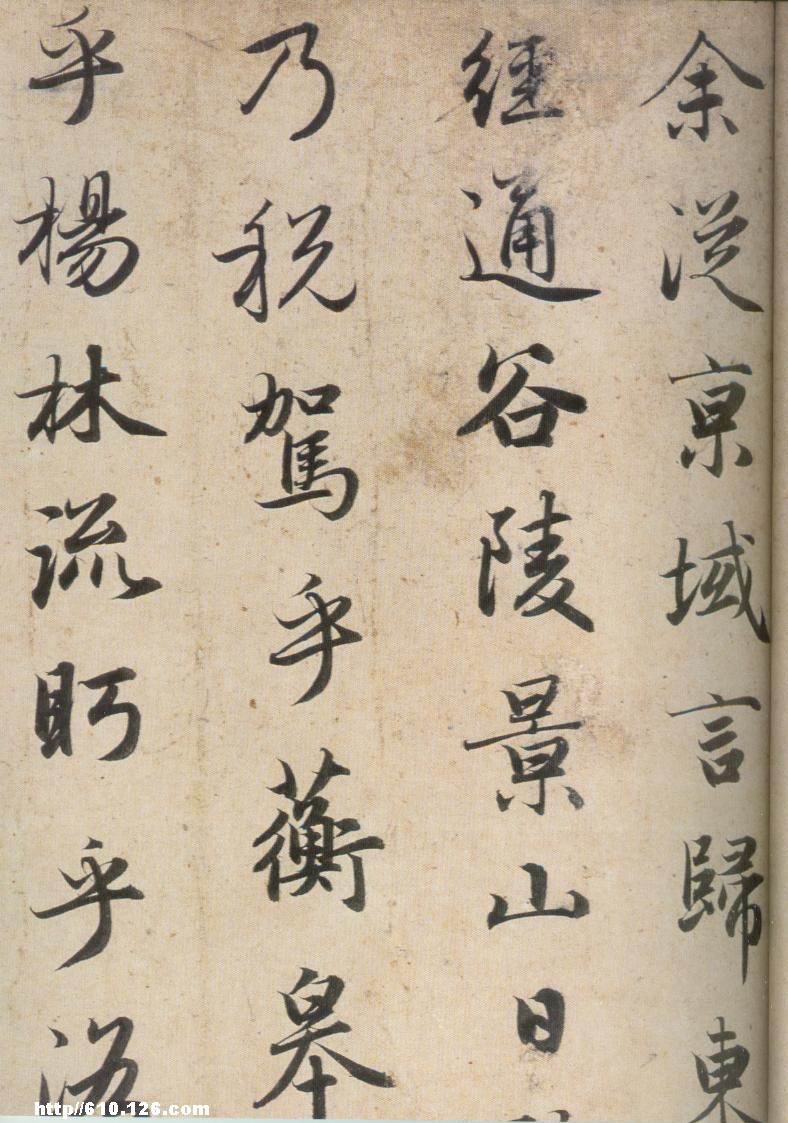 余從京域言歸東
經通谷陵景山日
乃稅駕乎蘅皋
乎楊林流眄乎洛
http//610.126.com